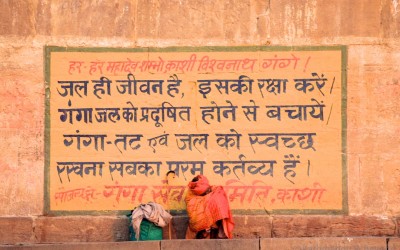 हर-हर महादेव शम्भो काशी विश्वनाथ गंगे।
जल ही जीवन है, इसकी रक्षा करें।
गंगा जल को प्रदूषित होने से बचायें
गंगा-तट एवं जल को स्वच्छ
रखना सबका परम कर्तव्य हैं।
गंगा समिति, काशी